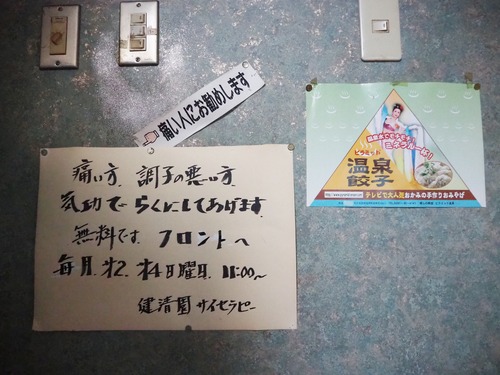 痛い人にお勧めします
痛い方、調子の悪い方、
気功で らくにしてあげます。
無料です。フロントへ
毎月、才2、才4日曜日、11:00〜
健清園 サイセラピー
ピラミッド
温泉
餃子
テレビで大人気おかみの手作りおみやげ